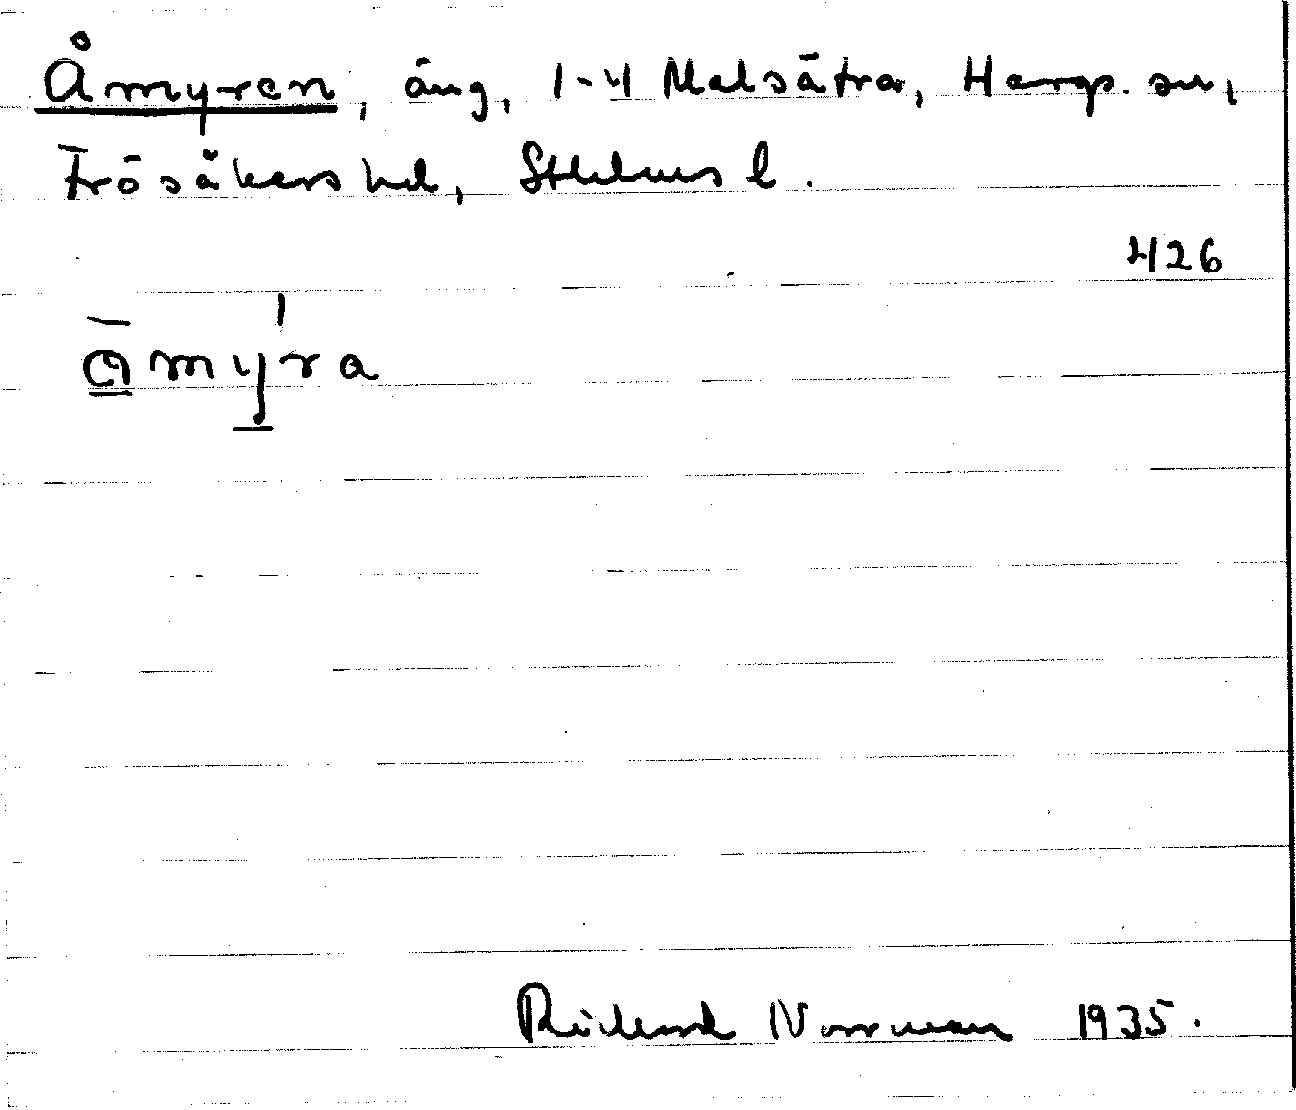 Åmyren, äng, 1-4 Malsätra, Hargs sn,
Frösåkers hd, Sthlms l.
426
a̱̅mý̱ra
Rickard Norrman 1935.